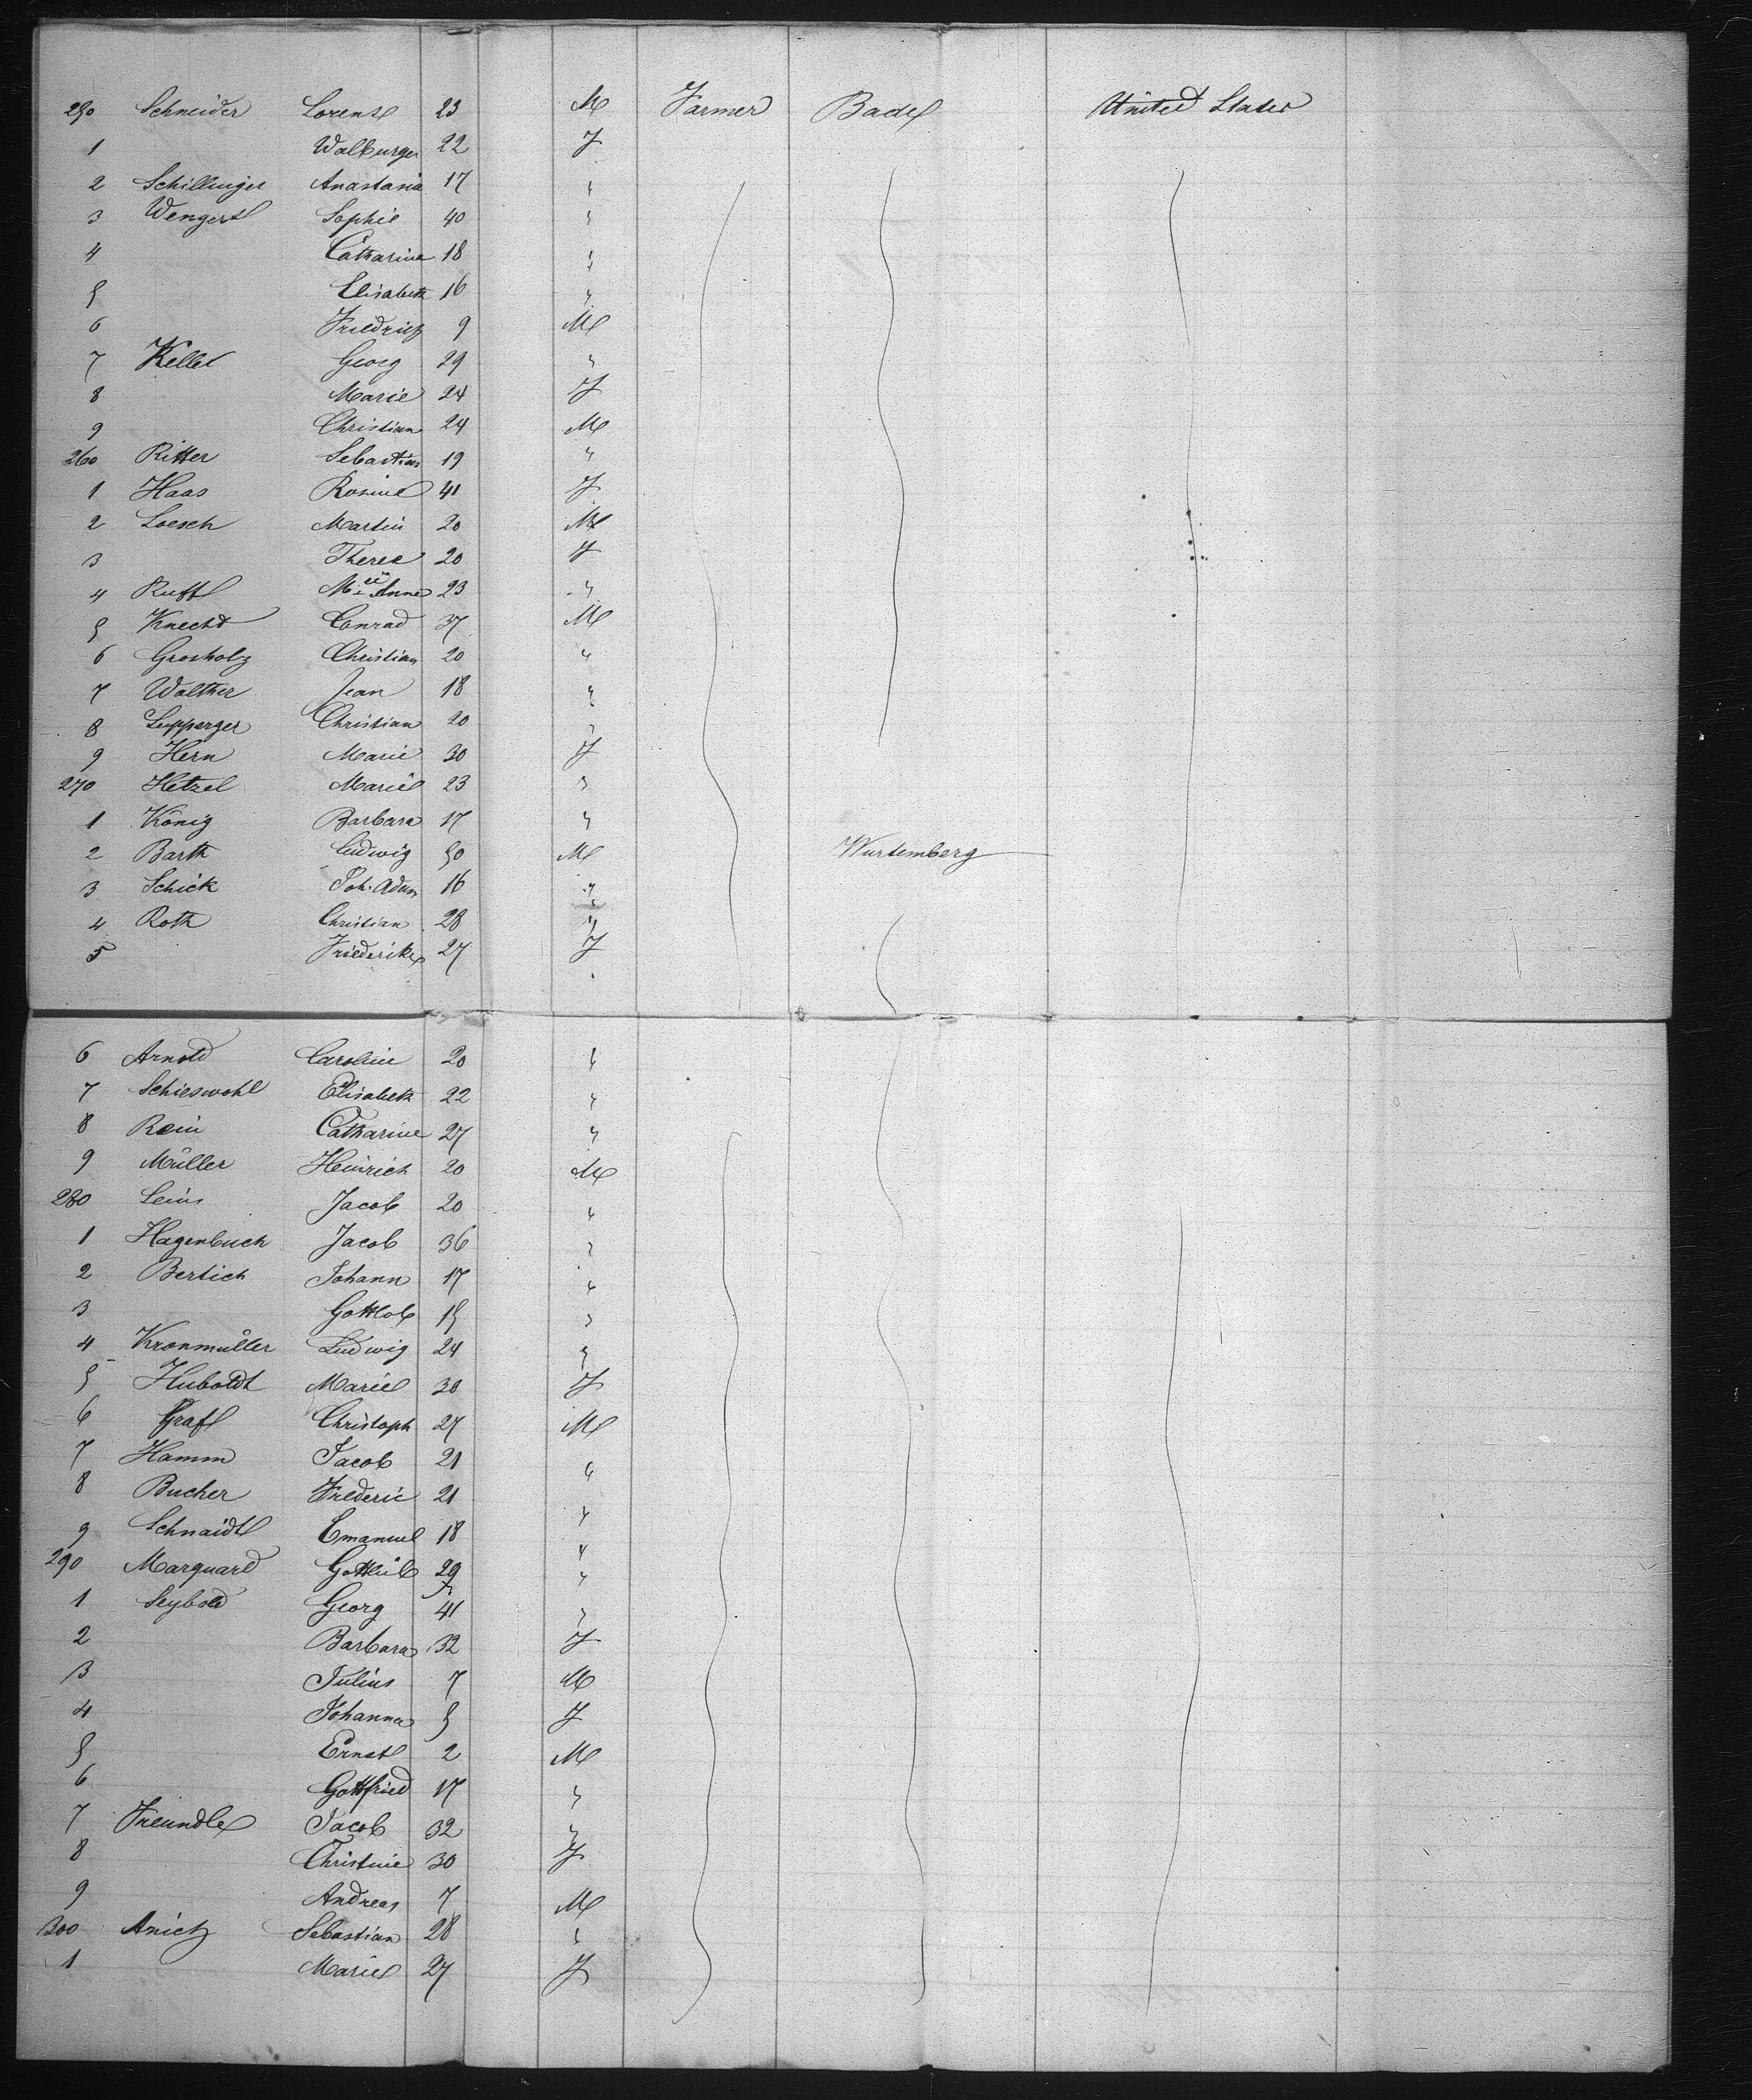 250 Schneider Lorenz 23 M Farmer Bade United States
1 Walburga 22 F
2 Schillinger Anastasia 17 "
3 Wengert Sophie 40 "
4 Catharine 18 "
5 Elisabeth 16 "
6 Friedrich 9 M
7 Keller Georg 29 "
8 Marie 24 F
9 Christian 24 M
260 Ritter Sebastian 19 "
1 Haas Rosine 41 F
2 Loesch Martin 20 M
3 Therese 20 F
4 Ruff Mie Anne 23 "
5 Knecht Conrad 37 M
6 Grosholz Christian 20 "
7 Walther Jean 18 "
8 Lupperger Christian 20 "
9 Hern Marie 30 F
270 Hetzel Marie 23 "
1 König Barbara 17 "
2 Barth Ludwig 50 M Wurtemberg
3 Schick Joh. Adam 16 "
4 Roth Christian 28 "
5 Friederike 27 F
6 Arnold Caroline 20 "
7 Schieswohl Elisabeth 22 "
8 Rein Catharine 27 "
9 Müller Heinrich 20 M
280 Leins Jacob 20 "
1 Hagenbuch Jacob 36 "
2 Bertich Johann 17 "
3 Gottlob 15 "
4 Kronmüller Ludwig 24 "
5 Huboldt Marie 30 F
6 Graf Christoph 27 M
7 Hamm Jacob 21 "
8 Bucher Frederic 21 "
9 Schnaidt Emanuel 18 "
290 Marquard Gottlieb 29 "
1 Seybold Georg 41 "
2 Barbara 32 F
3 Julius 7 M
4 Johanna 5 F
5 Ernst 2 M
6 Gottfried 17 "
7 Freundle Jacob 32 "
8 Christine 30 F
9 Andreas 7 M
300 Anich Sebastian 28 "
1 Marie 27 F